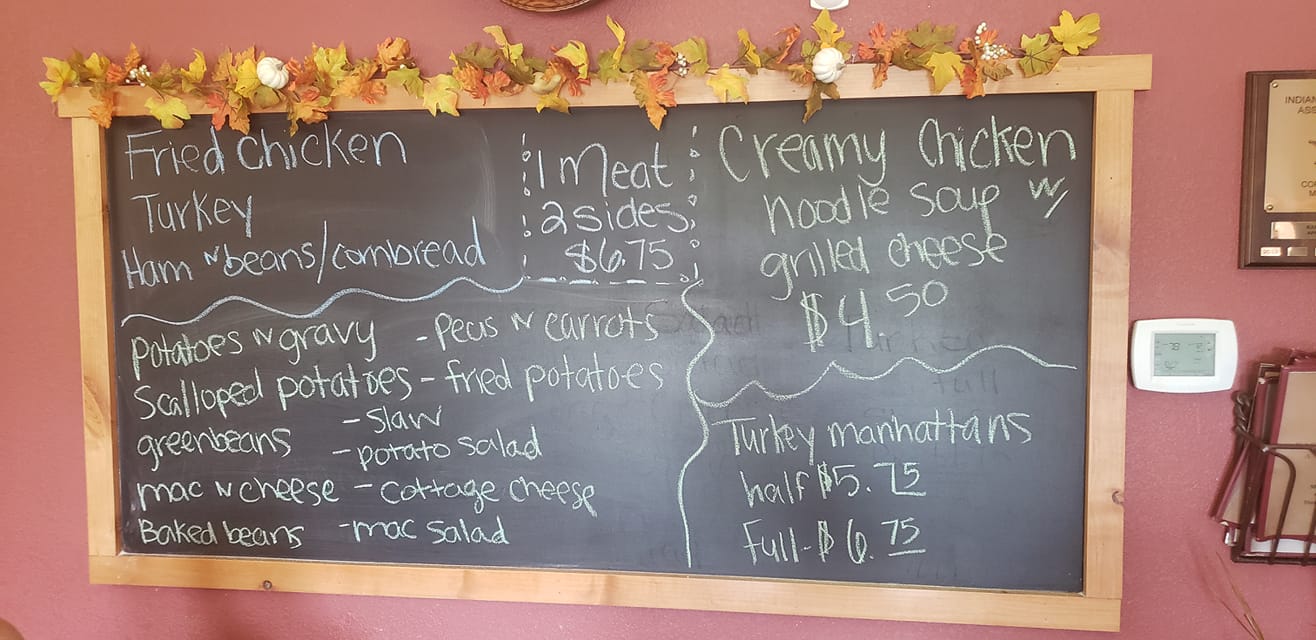 Fried chicken
Turkey
Ham n beans/cornbread
1 Meat
2 sides
$6.75
potatoes n gravy - peas n carrots
Scalloped potatoes - fried potatoes
- Slaw
greenbeans
- potato salad
mac n cheese - cottage cheese
Baked beans - mac salad
Creamy Chicken
noodle soup w/
grilled cheese
$4.50
Turkey manhattans
half $5.75
Full - $6.75